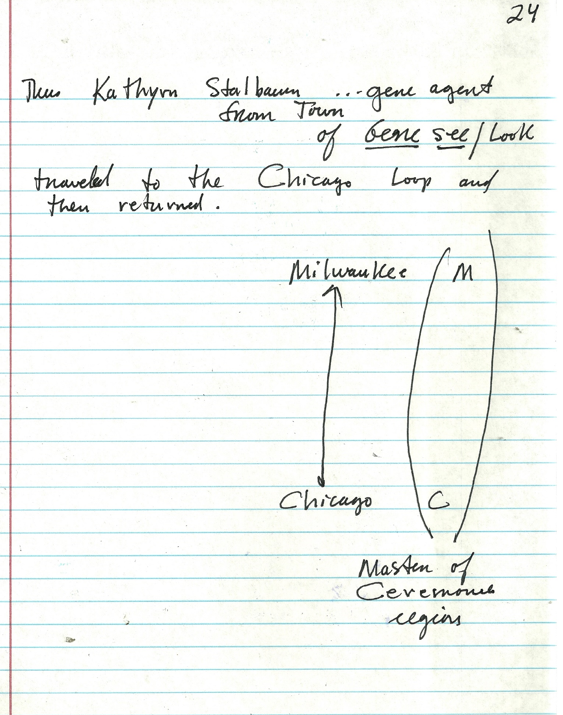 24
Thus Kathyrn Stalbaum ... gene agent
from Town
of Gene see/Look
traveled to the Chicago Loop and
then returned.
Milwaukee M
Chicago C
Master of
Ceremonies
region